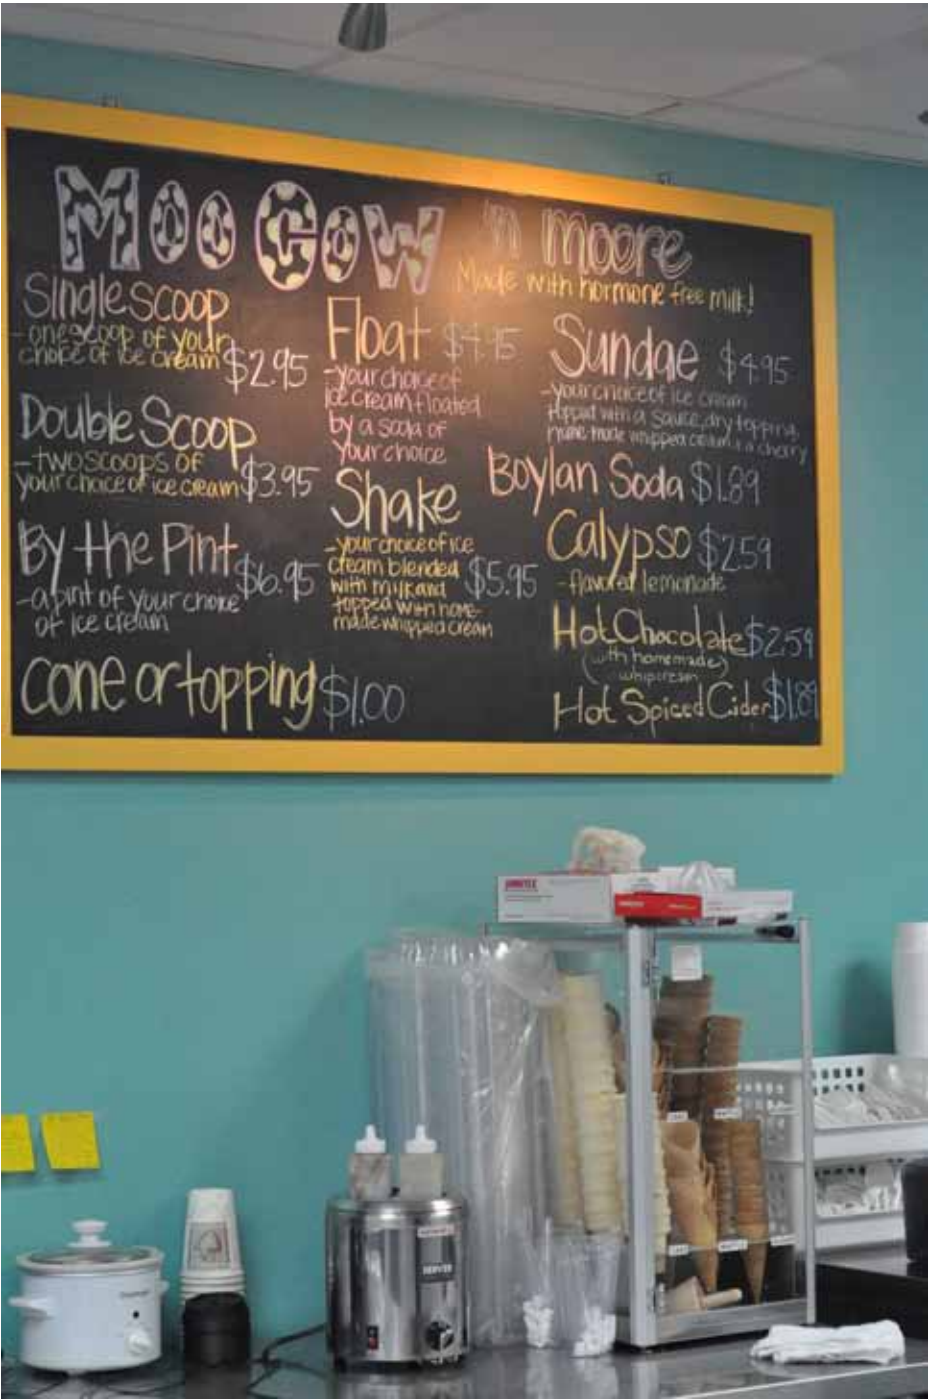 Moo Cow 'n moore
Made with hormone free milk!
Single scoop
- one scoop of your
choice of ice cream $2.95
Double Scoop
- two scoops of
your choice of ice cream $3.95
By the Pint $6.95
- a pint of your choice
of ice cream
cone or topping $1.00
Float $4.95
- your choice of
ice cream floated
by a soda of
your choice
Shake
- your choice of ice
cream blended $5.95
with milk and
topped with home-
made whipped cream
Sundae $4.95
- your choice of ice cream
topped with a sauce, dry topping,
home made whipped cream, & a cherry
Boylan Soda $1.89
Calypso $2.59
- flavored lemonade
Hot Chocolate $2.59
(with homemade)
whipcream
Hot Spiced Cider $1.89
SERVER